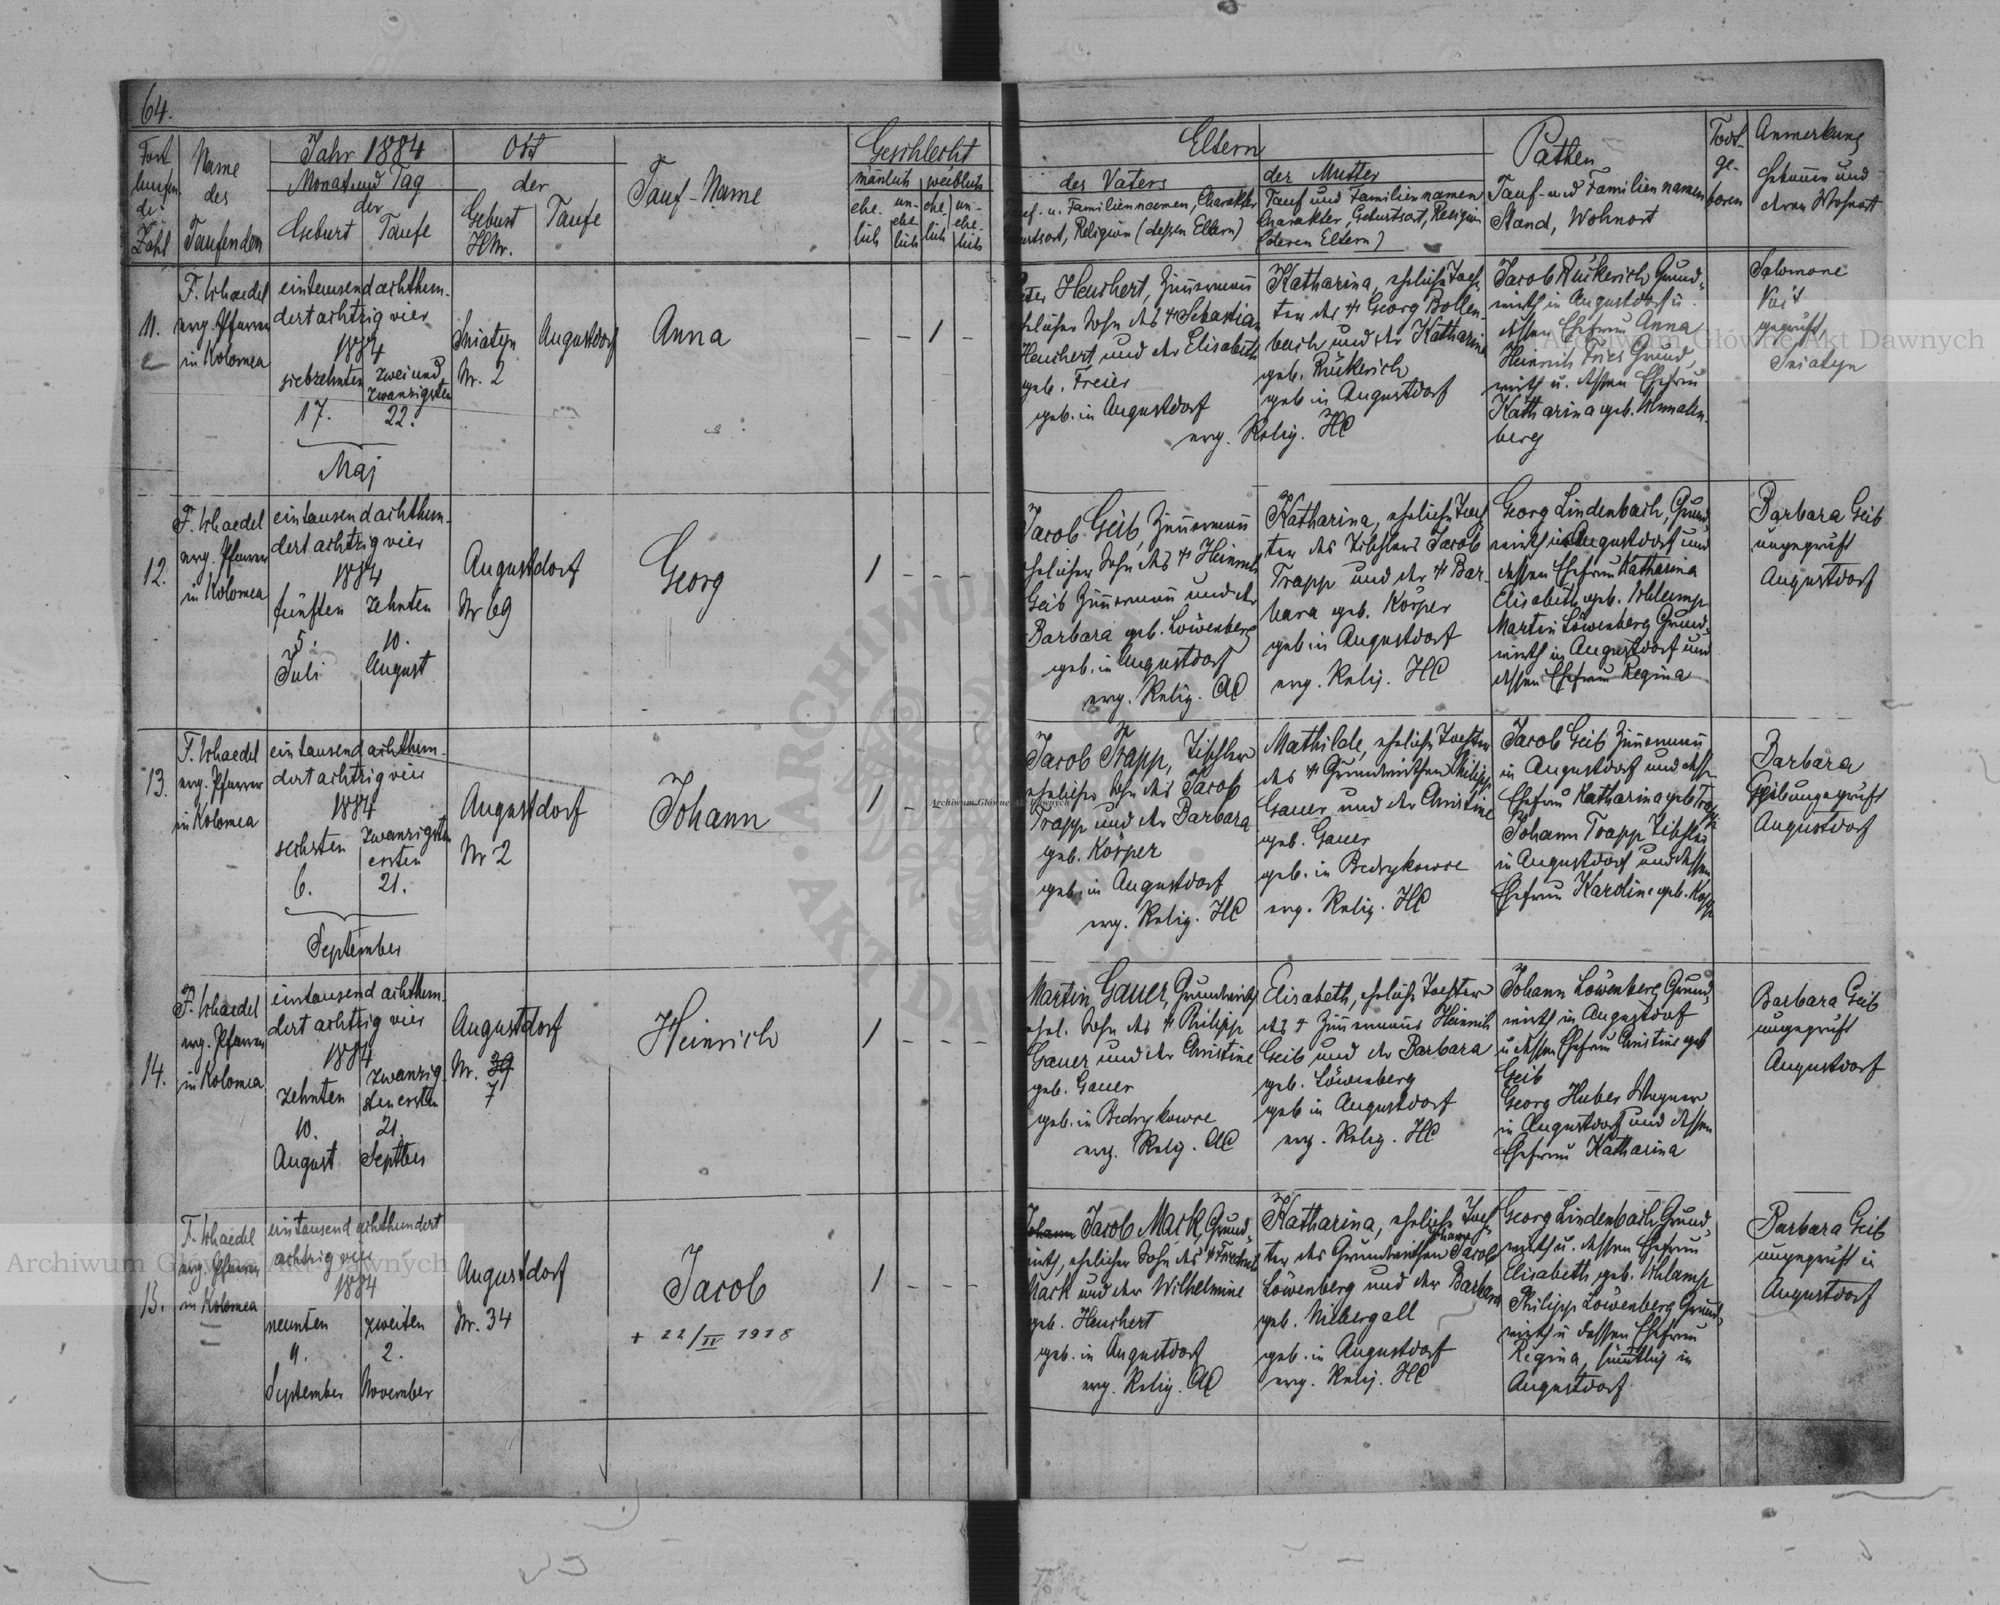 64.
Fort
laufen
de
Zahl
Name
des
Taufenden
Jahr 1884
Monat und Tag
der
Geburt
Taufe
Ort
der
Geburt
HNr.
Taufe
Tauf-Name
Geschlecht
mänlich
weiblich
ehe-
lich
un-
ehe
lich
ehe
lich
un-
ehe-
lich
Eltern
des Vaters
Tauf- u. Familiennamen, Charakter
Geburtsort, Religion (dessen Eltern)
der Mutter
Tauf und Familiennamen
Charakter, Geburtsort, Religion
(deren Eltern)
Pathen
Tauf- und Familiennamen
Stand, Wohnort
Todt-
ge-
boren
Anmerkung
Hebamme und
deren Wohnort
11.
evg. Pfarrer
in Kolomea
eintausend achthun-
dert achtzig vier
1884
siebzehnten
17.
zwei und
zwanzigsten
22.
Maj
Sniatyn
Nr. 2
Augustdorf
Anna
– – 1 –
Peter Heuchert, Zimmermann
ehelicher Sohn des † Sebastian
Heuchert und der Elisabeth
geb. Freier
geb. in Augustdorf
Katharina, eheliche Toch-
ter des † Georg Bollen
bach und der Katharina
geb. Rükerich
geb in Augustdorf
evg. Relig. HC
Jacob Rükerich Grund-
wirth in Augustdorf u.
dessen Ehefrau Anna
Heinrich Fries Grund
wirth u. dessen Ehefrau
Katharina geb.
berg
Salomone
Veit
geprüft
Sniatyn
12.
evg. Pfarrer
in Kolomea
eintausend achthun-
dert achtzig vier
1884
fünften
5.
Juli
zehnten
10.
August
Augustdorf
Nr 69
Georg
1 – – –
Jacob Geib, Zimmermann
ehelicher Sohn des † Heinrich
Geib Zimmermann und der
Barbara geb. Löwenberg
geb. in Augustdorf
evg. Relig. AC
Katharina, eheliche Toch
ter des Tischlers Jacob
Trapp und der † Bar-
bara geb. Körper
geb in Augustdorf
evg. Relig. HC
Georg Lindenbach, Grund-
wirth in Augustdorf und
dessen Ehefrau Katharina
Elisabeth geb. Schlamp
Martin Löwenberg Grund-
wirth in Augustdorf und
dessen Ehefrau Regina
Barbara Geib
ungeprüft
Augustdorf
13.
evg. Pfarrer
in Kolomea
ein tausend achthun-
dert achtzig vier
1884
sechsten
6.
zwanzigsten
ersten
21.
September
Augustdorf
Nr 2
Johann
1 –
Jacob Trapp, Tischler
ehelicher Sohn des Jacob
Trapp und der Barbara
geb. Körper
geb. in Augustdorf
evg. Relig. HC
Mathilde, eheliche Tochter
des † Grundwirthen Philipp
Gauer und der Christine
geb. Gauer
geb. in Bedrykowce
evg. Relig. HC
Jacob Geib Zimmermann
in Augustdorf und dess-
Ehefrau Katharina geb Trapp
Johann Trapp Tischler
in Augustdorf und dessen
Ehefrau Karoline geb.
Barbara
Geib ungeprüft
Augustdorf
14.
evg. Pfarrer
in Kolomea
eintausend achthun-
dert achtzig vier
1884
zehnten
10.
August
zwanzig-
sten ersten
21.
Septber
Augustdorf
Nr. 39
7
Heinrich
1 – – –
Martin Gauer, Grundwirth
ehel. Sohn des † Philipp
Gauer und der Christine
geb. Gauer
geb. in Bedrykowce
evg. Relig. AC
Elisabeth, eheliche Tochter
des † Zimmermanns Heinrich
Geib und der Barbara
geb. Löwenberg
geb in Augustdorf
evg. Relig. HC
Johann Löwenberg Grund-
wirth in Augustdorf
u dessen Ehefrau Christine geb
Geib
Georg Huber Wagner
in Augustdorf und dessen
Ehefrau Katharina
Barbara Geib
ungeprüft
Augustdorf
15.
evg. Pfarrer
in Kolomea
eintausend achthundert
achtzig vier
1884
neunten
9.
September
zweiten
2.
November
Augustdorf
Nr. 34
Jacob
+ 22/IV 1918
1 – – –
Johann Jacob Mark, Grund-
wirth, ehelicher Sohn des † Friedrich
Mark und der Wilhelmine
geb. Heuchert
geb. in Augustdorf
evg. Relig. AC
Katharina, eheliche Toch-
ter des Grundwirthen Johann Jacob
Löwenberg und der Barbara
geb. Nibergall
geb. in Augustdorf
evg. Relig. HC
Georg Lindenbach Grund-
wirth u. dessen Ehefrau
Elisabeth geb. Schlamp
Philipp Löwenberg Grund-
wirth u dessen Ehefrau
Regina, sämtlich in
Augustdorf
Barbara Geib
ungeprüft in
Augustdorf
Archiwum Główne Akt Dawnych
Archiwum Główne Akt Dawnych
Archiwum Główne Akt Dawnych